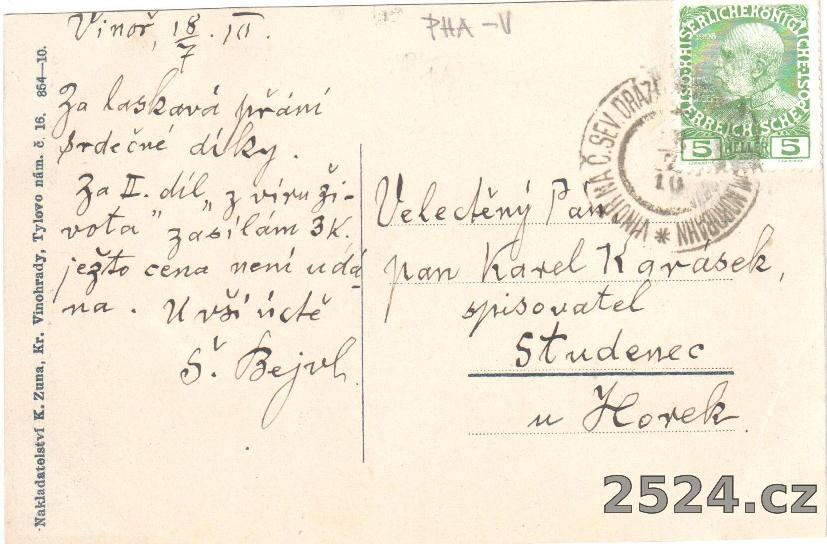 PHA-V
Vinoř, 18/7. 10.
Za laskavá přání
srdečné díky.
Za II. díl „z víru ži-
vota" zasílám 3K.
ježto cena není udá-
na. V vší úctě
S. Bejvl.
Velectěný Pán
pan Karel Karásek,
spisovatel
Studenec
u Horek.
Nakladatelství K. Zuna, Kr. Vinohrady, Tylovo nám. č. 16. 854—10.
VINOŘ NA Č. SEV. DRÁZE
NORDBAHN
10
1908
5 HELLER 5
2524.cz